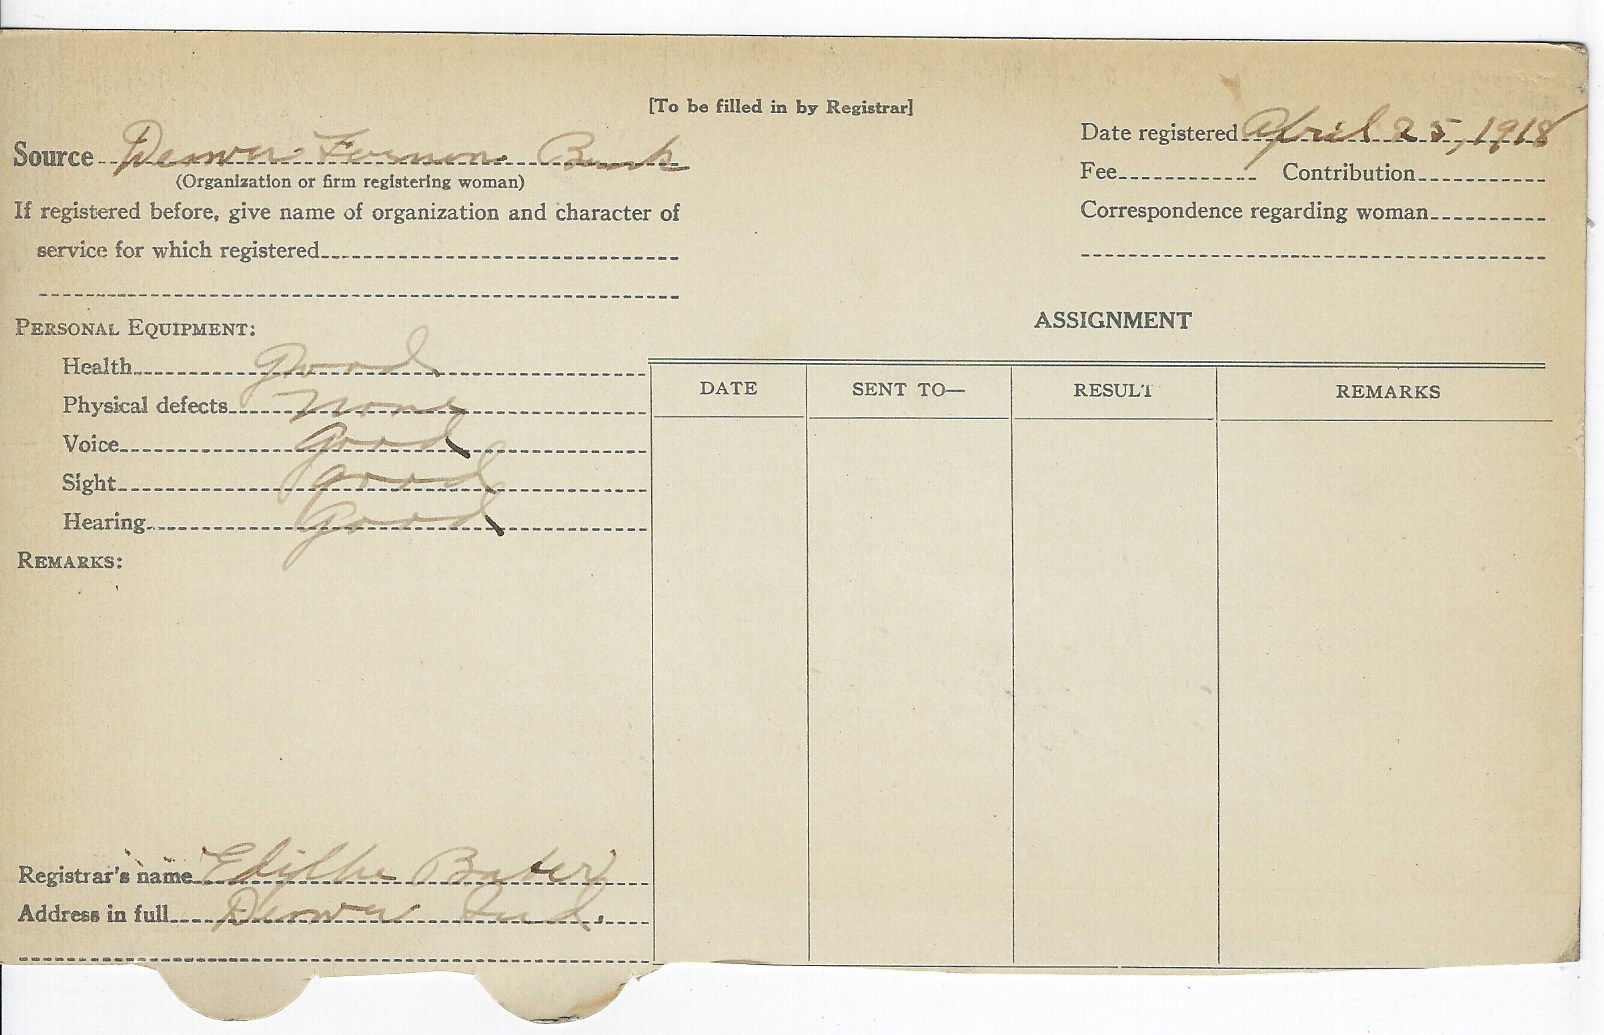 [To be filled in by Registrar]
Source Denver Bank
(Organization or firm registering woman)
If registered before, give name of organization and character of
service for which registered
Date registered April 25, 1918
Fee Contribution
Correspondence regarding woman
PERSONAL EQUIPMENT:
Health Good
Physical defects None
Voice Good
Sight Good
Hearing Good
REMARKS:
Registrar's name Baber
Address in full Denver Ind.
ASSIGNMENT
DATE SENT TO— RESULT REMARKS